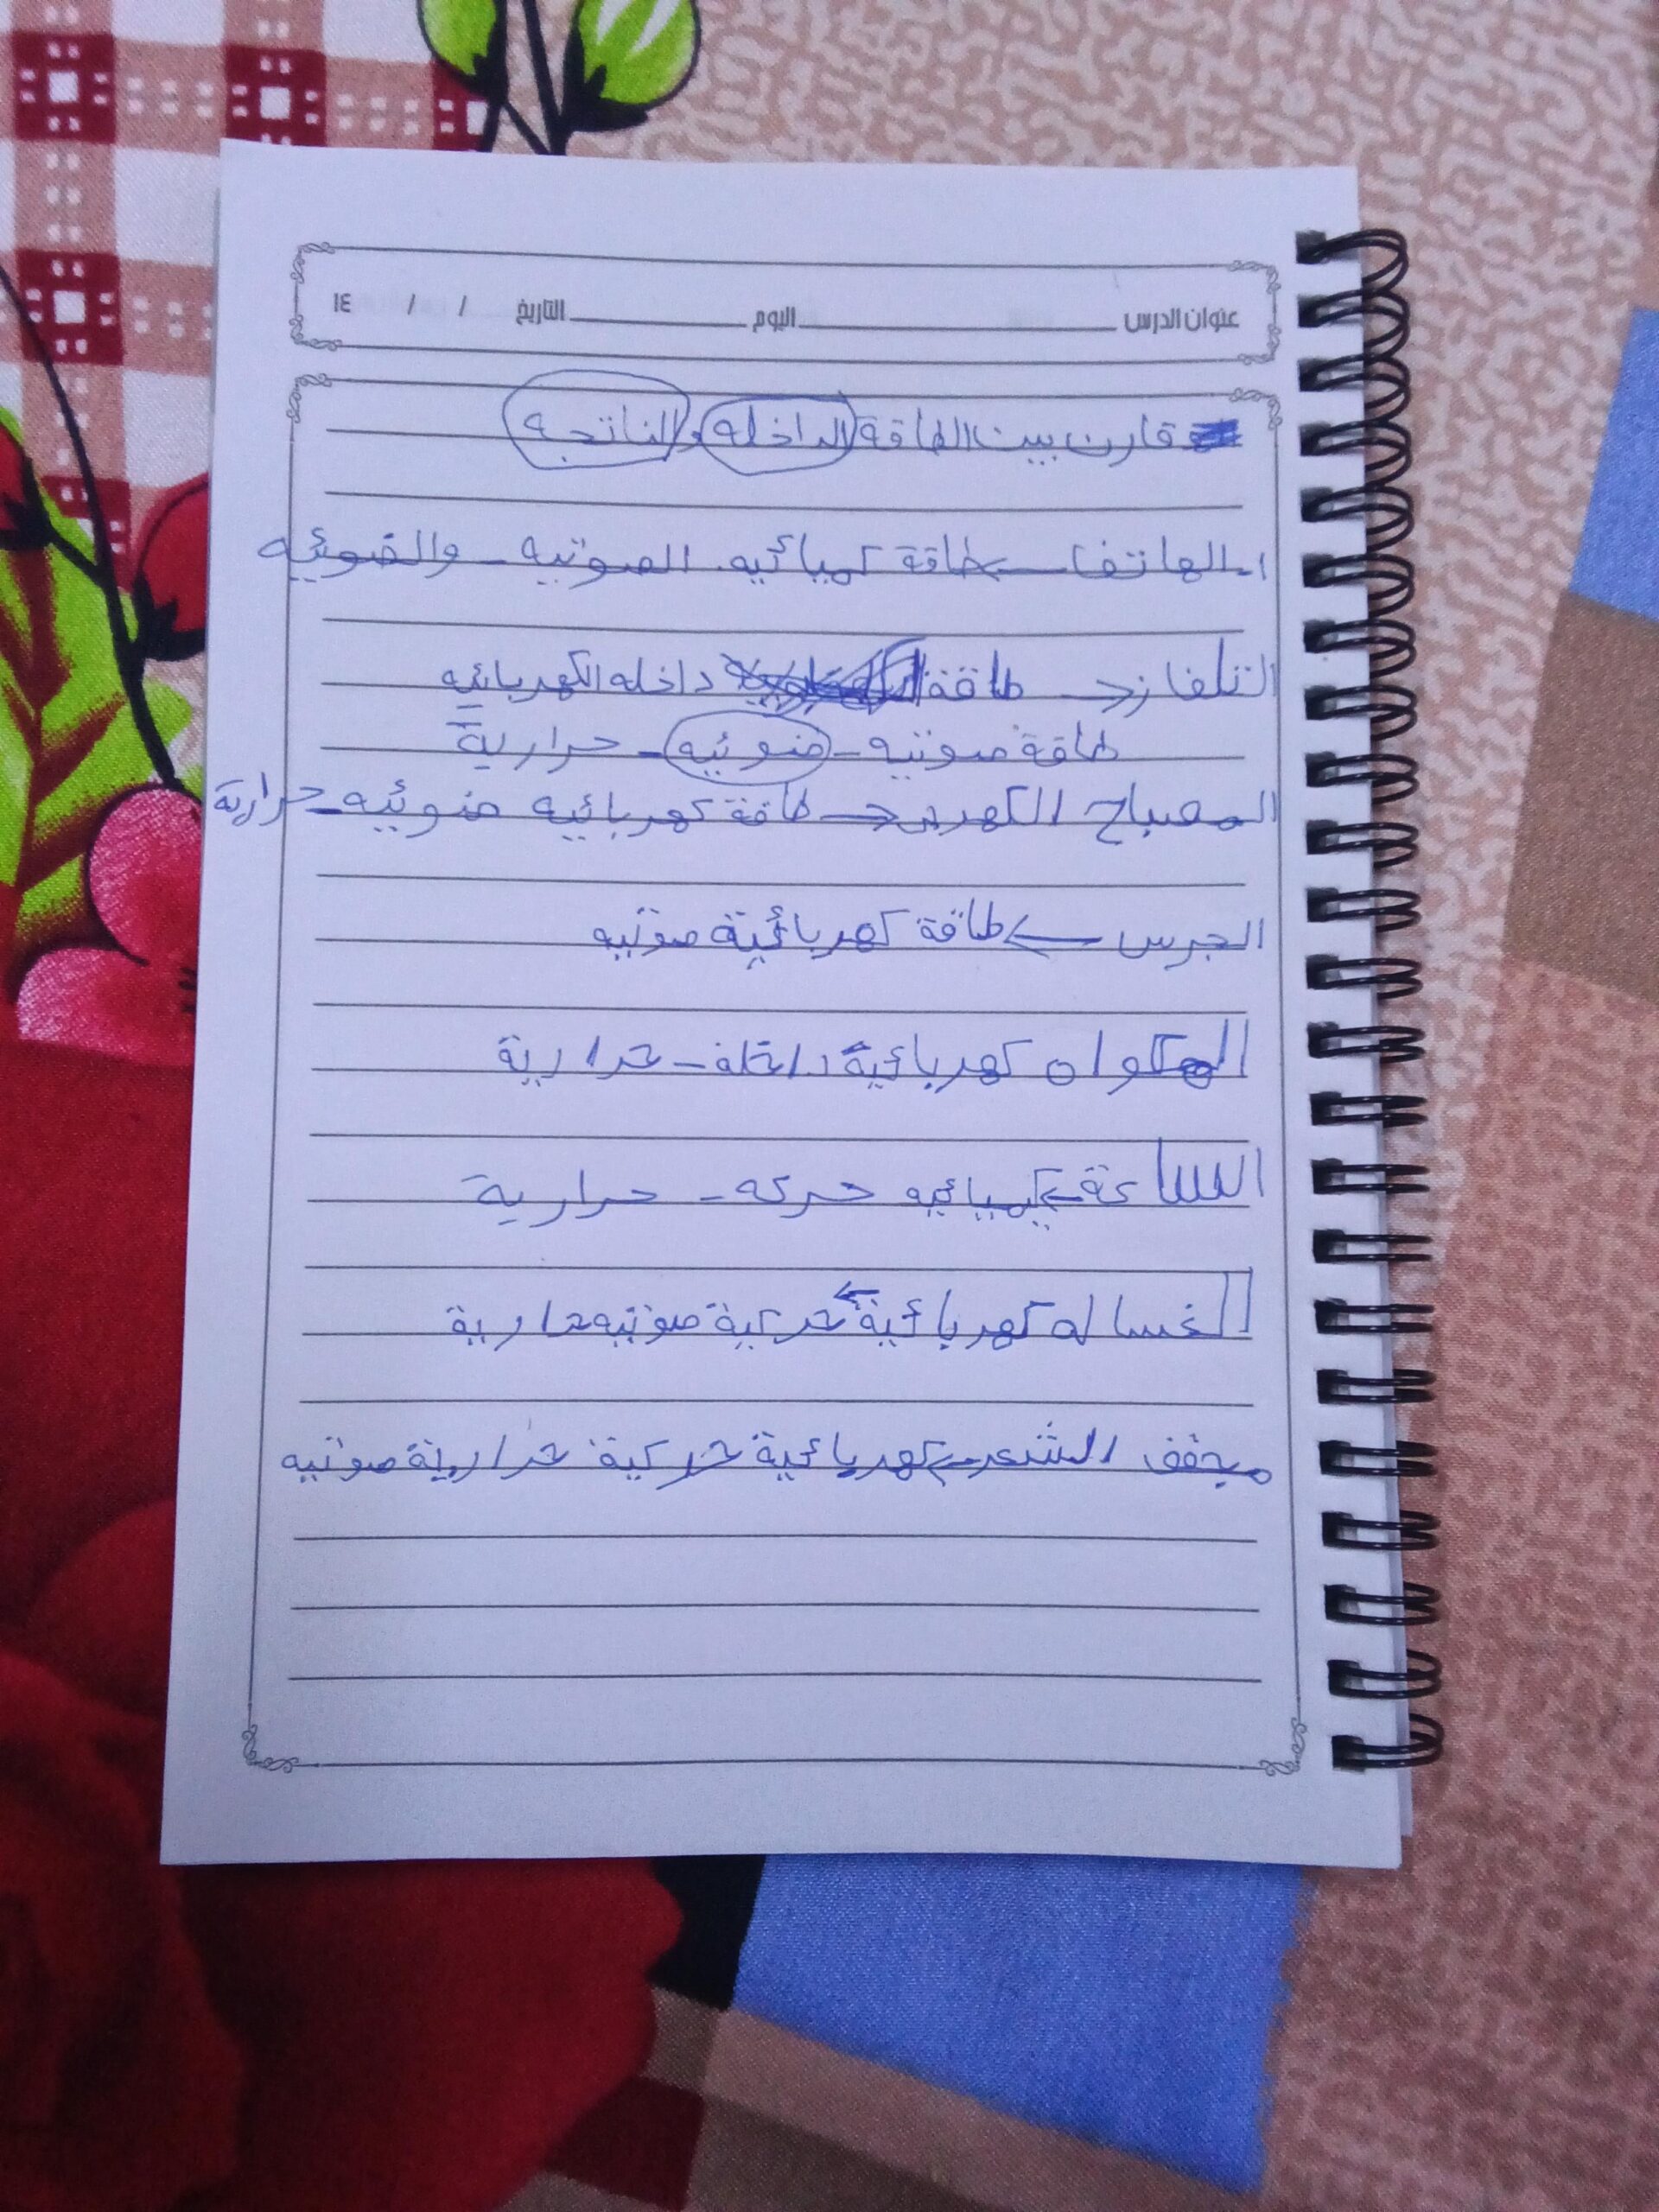 عنوان الدرس اليوم التاريخ / / ١٤
قارن بين الطاقة الداخله والناتجه
١ـ الهاتف ← طاقة كميائيه. الصوتيه - والضوئيه
التلفاز ← طاقة داخله الكهربائيه
طاقة صوتيه - ضوئيه - حرارية
المصباح الكهربى ← طاقة كهربائيه ضوئيه - حرارية
الجرس ← طاقة كهربائية صوتيه
المكواه كهربائية داخلة - حرارية
الساعة ← كيميائيه حركه - حرارية
الغساله كهربائية ← حركية صوتيه حرارية
مجفف الشعر ← كهربائية حركية حرارية صوتيه